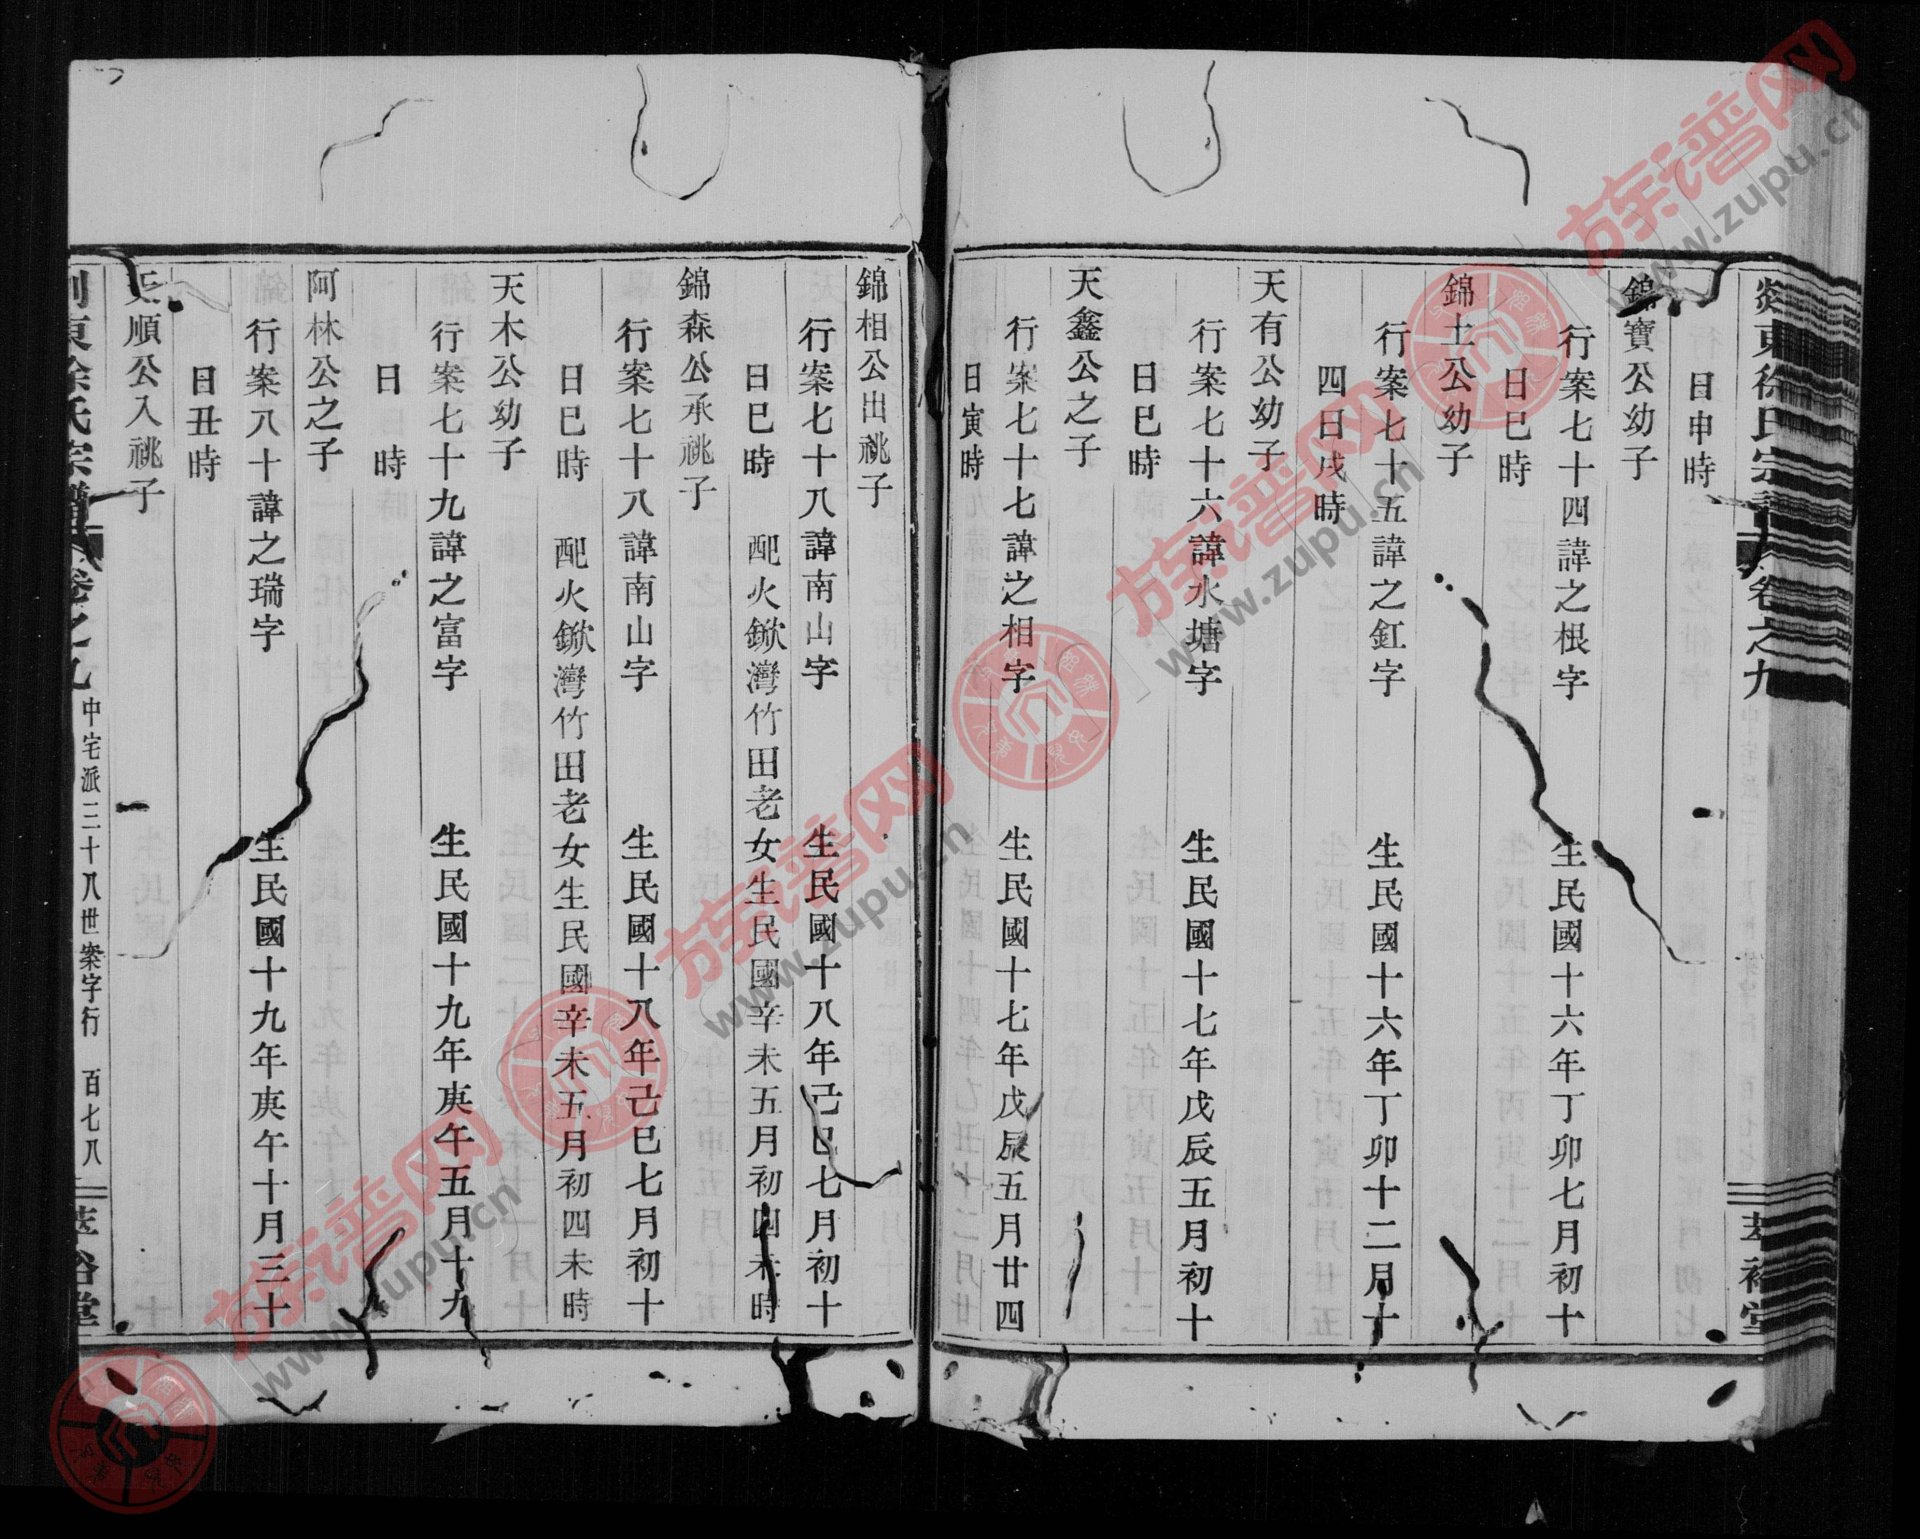 東徐氏宗譜 卷之九
日申時
錦寶公幼子
行案七十四諱之根字 生民國十六年丁卯七月初十
日巳時
錦土公幼子
行案七十五諱之釭字 生民國十六年丁卯十二月十
四日戌時
天有公幼子
行案七十六諱水塘字 生民國十七年戊辰五月初十
日巳時
天鑫公之子
行案七十七諱之相字 生民國十七年戊辰五月廿四
日寅時
錦相公出祧子
行案七十八諱南山字 生民國十八年己巳七月初十
日巳時 配火鍁灣竹田老女生民國辛未五月初四未時
錦森公承祧子
行案七十八諱南山字 生民國十八年己巳七月初十
日巳時 配火鍁灣竹田老女生民國辛未五月初四未時
天木公幼子
行案七十九諱之富字 生民國十九年庚午五月十九
日 時
阿林公之子
行案八十諱之瑞字 生民國十九年庚午十月三十
日丑時
天順公入祧子
東徐氏宗譜 卷之九 中宅派三十八世案字行 百七八 堂
族谱网
www.zupu.cn
族谱网
www.zupu.cn
族谱网
www.zupu.cn
族谱网
www.zupu.cn